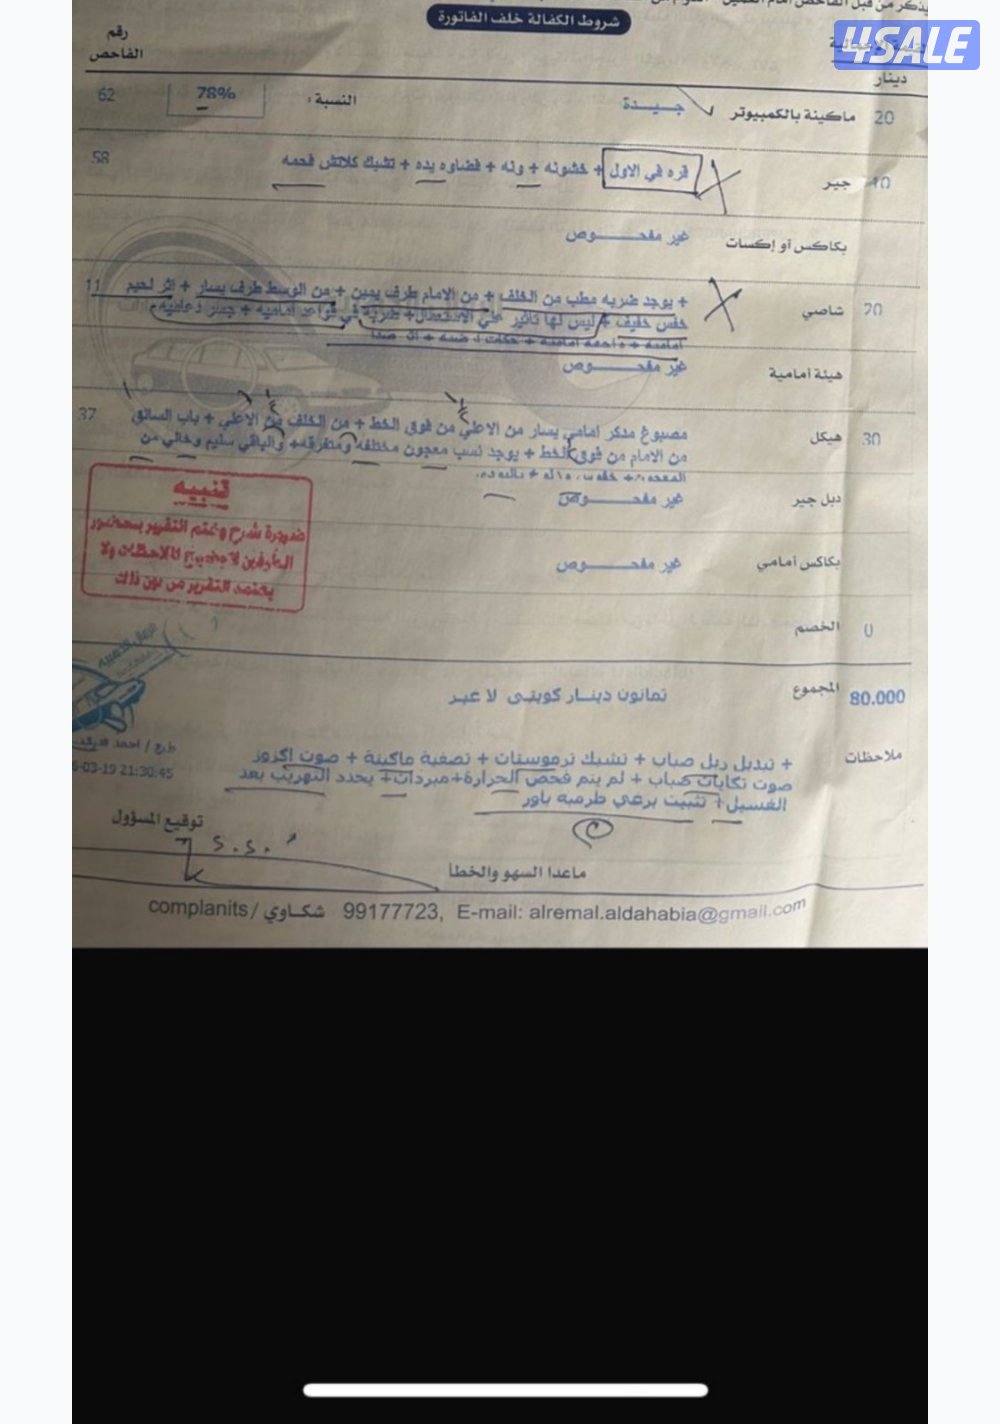 4SALE
شروط الكفالة خلف الفاتورة
دينار
رقم
الفاحص
20 ماكينة بالكمبيوتر جـيـــدة النسبة: 78% 62
10 جير قره في الاول + خشونه + ونه + فضاوه يده + تشيك كلاتش فحمه 58
بكاكس أو إكسات غير مفحـــــوص
20 شاصي + يوجد ضربه مطب من الخلف + من الامام طرف يمين + من الوسط طرف يسار + اثر لحيم 11
خفس خفيف + ليس لها تأثير علي الاستعمال + ضربة في قواعد أمامية + جسر دعاميه
هيئة أمامية غير مفحـــــوص
30 هيكل مصبوغ مدكر امامي يسار من الاعلي من فوق الخط + من الخلف من الاعلي + باب السائق 37
من الامام من فوق الخط + يوجد نسب معجون مختلفه ومتفرقه + والباقي سليم وخالي من
دبل جير غير مفحـــــوص
بكاكس أمامي غير مفحـــــوص
تنبيه
ضرورة شرح وختم التقرير بحضور
الطرفين لا
يعتمد التقرير من دون ذلك
0 الخصم
80.000 المجموع ثمانون دينـار كويتـي لا غيـر
ملاحظات + تبديل ربل صباب + تشيك ترموستات + تصفية ماكينة + صوت اكزوز
صوت تكايات صباب + لم يتم فحص الحرارة+مبردات+ يحدد التهريب بعد
الغسيل+ تثبيت برغي طرمبه باور
-03-19 21:30:45
توقيع المسؤول
S.S.
ماعدا السهو والخطأ
complanits / شكـاوي 99177723, E-mail: alremal.aldahabia@gmail.com